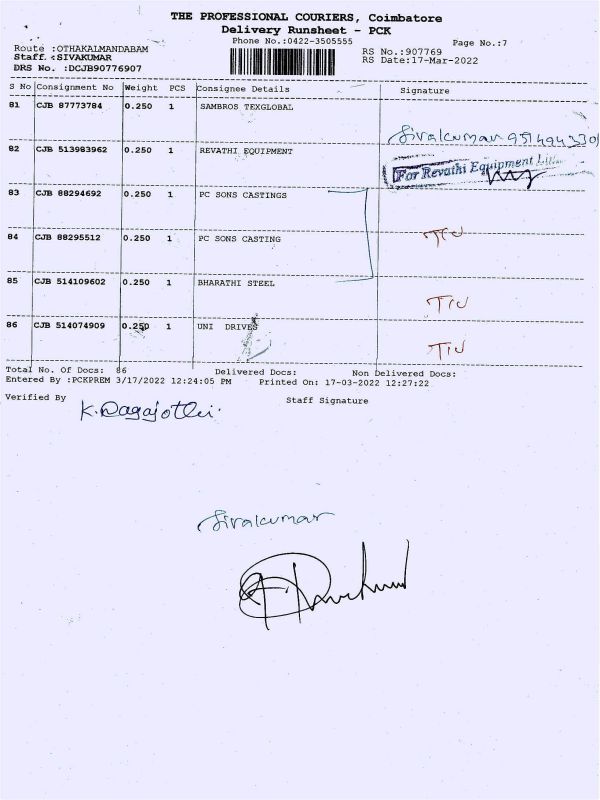 THE PROFESSIONAL COURIERS, Coimbatore
Delivery Runsheet - PCK
Phone No.:0422-3505555
Page No.:7
Route :OTHAKALMANDABAM
RS No.:907769
Staff. :SIVAKUMAR
RS Date:17-Mar-2022
DRS No. :DCJB90776907
S No Consignment No Weight PCS Consignee Details Signature
81 CJB 87773784 0.250 1 SAMBROS TEXGLOBAL
Sivakumar
82 CJB 513983962 0.250 1 REVATHI EQUIPMENT
For Revathi Equipment
83 CJB 88294692 0.250 1 PC SONS CASTINGS
84 CJB 88295512 0.250 1 PC SONS CASTING
85 CJB 514109602 0.250 1 BHARATHI STEEL
86 CJB 514074909 0.250 1 UNI DRIVES
Total No. Of Docs: 86 Delivered Docs: Non Delivered Docs:
Entered By :PCKPREM 3/17/2022 12:24:05 PM Printed On: 17-03-2022 12:27:22
Verified By
Staff Signature
K. Nagajothi.
Sivakumar